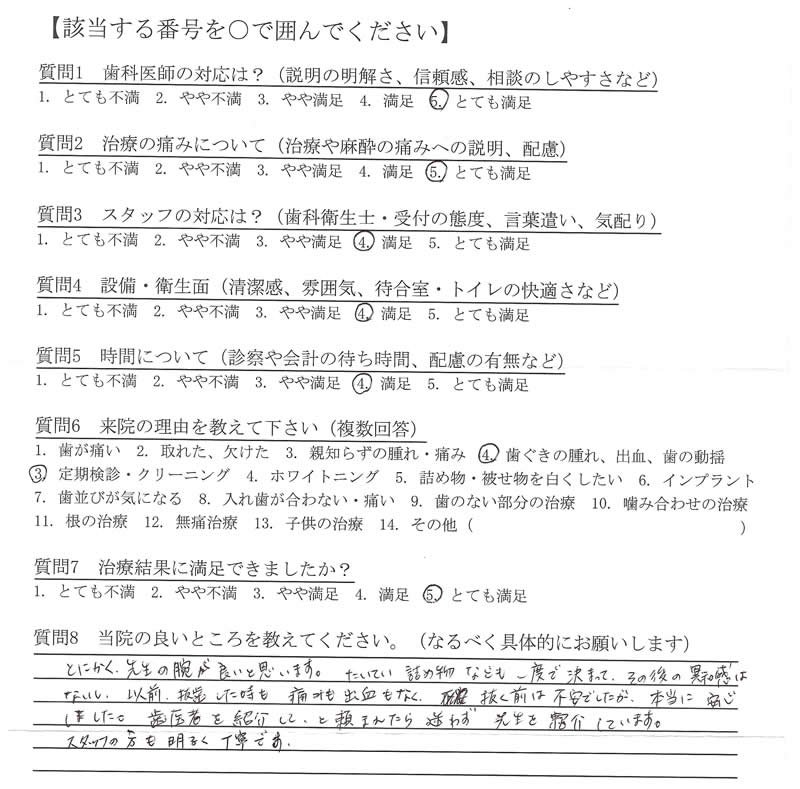 【該当する番号を○で囲んでください】
質問1 歯科医師の対応は？（説明の明解さ、信頼感、相談のしやすさなど）
1. とても不満 2. やや不満 3. やや満足 4. 満足 5. とても満足
質問2 治療の痛みについて（治療や麻酔の痛みへの説明、配慮）
1. とても不満 2. やや不満 3. やや満足 4. 満足 5. とても満足
質問3 スタッフの対応は？（歯科衛生士・受付の態度、言葉遣い、気配り）
1. とても不満 2. やや不満 3. やや満足 4. 満足 5. とても満足
質問4 設備・衛生面（清潔感、雰囲気、待合室・トイレの快適さなど）
1. とても不満 2. やや不満 3. やや満足 4. 満足 5. とても満足
質問5 時間について（診察や会計の待ち時間、配慮の有無など）
1. とても不満 2. やや不満 3. やや満足 4. 満足 5. とても満足
質問6 来院の理由を教えて下さい（複数回答）
1. 歯が痛い 2. 取れた、欠けた 3. 親知らずの腫れ・痛み 4. 歯ぐきの腫れ、出血、歯の動揺
3. 定期検診・クリーニング 4. ホワイトニング 5. 詰め物・被せ物を白くしたい 6. インプラント
7. 歯並びが気になる 8. 入れ歯が合わない・痛い 9. 歯のない部分の治療 10. 噛み合わせの治療
11. 根の治療 12. 無痛治療 13. 子供の治療 14. その他（ ）
質問7 治療結果に満足できましたか？
1. とても不満 2. やや不満 3. やや満足 4. 満足 5. とても満足
質問8 当院の良いところを教えてください。（なるべく具体的にお願いします）
とにかく、先生の腕が良いと思います。たいてい 詰め物 なども 一度で 決まって、その後の 異和感は
ないし、以前、抜歯した時も 痛みも出血もなく、抜く前は 不安でしたが、本当に 安心
しました。歯医者を紹介して、と頼まれたら 迷わず 先生を 紹介しています。
スタッフの方も 明るく 丁寧です。